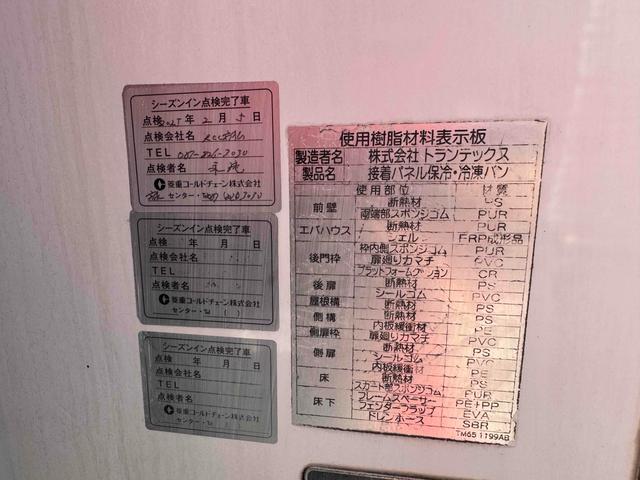 シーズンイン点検完了車
点検 年 2 月 5 日
点検会社名
TEL
点検者名
菱重コールドチェーン株式会社
センター・
シーズンイン点検完了車
点検 年 月 日
点検会社名
TEL
点検者名
菱重コールドチェーン株式会社
センター・℡ ( )
シーズンイン点検完了車
点検 年 月 日
点検会社名
TEL
点検者名
菱重コールドチェーン株式会社
センター・℡
使用樹脂材料表示板
製造者名 株式会社 トランテックス
製品名 接着パネル保冷・冷凍バン
使用部位 材質
前壁 断熱材 PS
端部スポンジゴム PUR
エバハウス 断熱材 PUR
シェル FRP成形品
後門枠 枠内側スポンジゴム PUR
扉廻りカマチ PVC
プラットフォームクッション CR
後扉 断熱材 PS
シールゴム PVC
屋根構 断熱材 PS
側構 断熱材 PS
内板緩衝材 PE
側扉枠 扉廻りカマチ PVC
側扉 断熱材 PS
シールゴム PVC
内板緩衝 PE
床 断熱材 PS
床下 スカート部スポンジゴム PUR
フレームスペーサー PE+PP
フェンダーフラップ EVA
ドレンホース SBR
TM65 1199AB